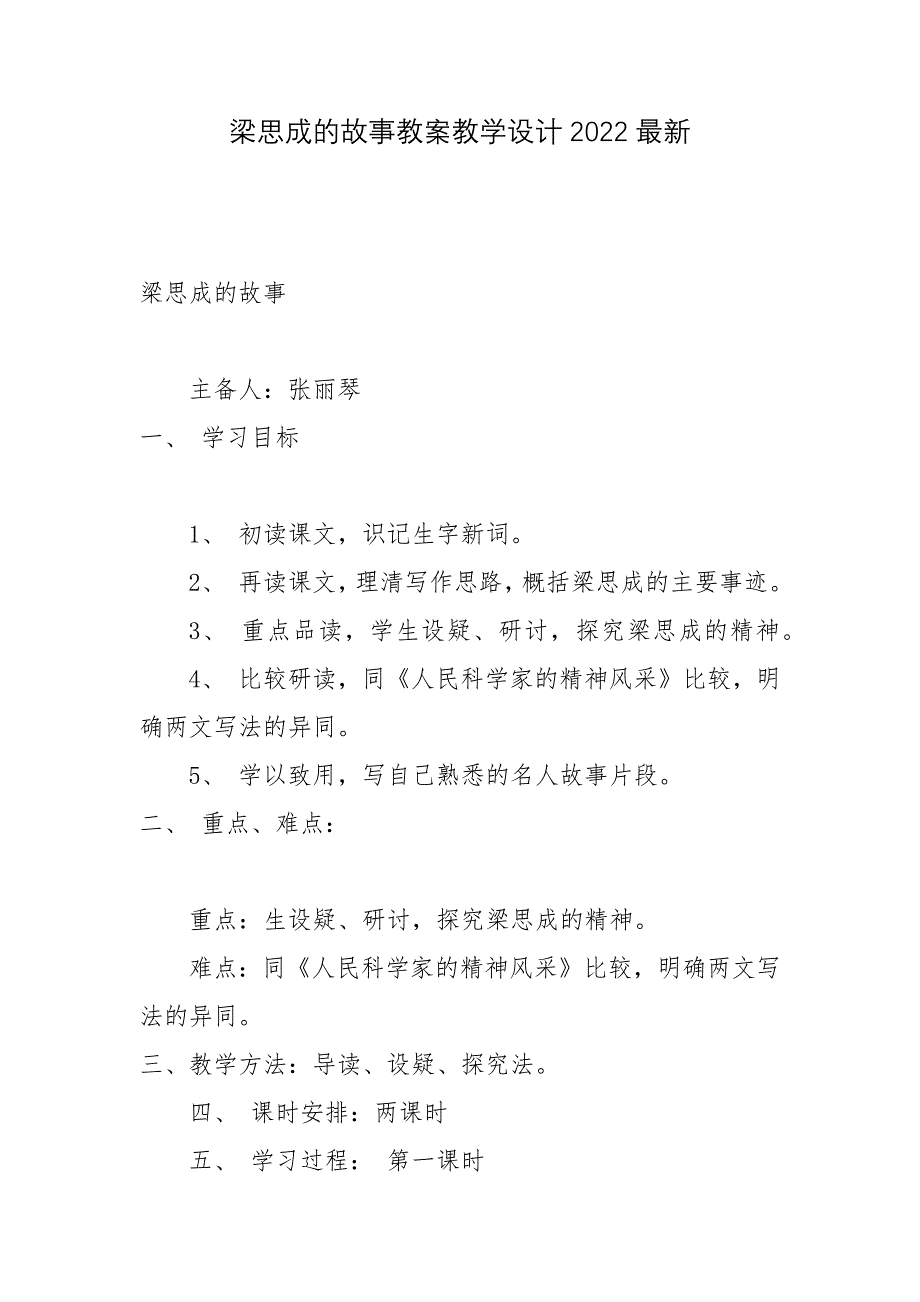 梁思成的故事教案教学设计 2022 最新
梁思成的故事
主备人：张丽琴
一、 学习目标
1、 初读课文，识记生字新词。
2、 再读课文，理清写作思路，概括梁思成的主要事迹。
3、 重点品读，学生设疑、研讨，探究梁思成的精神。
4、 比较研读，同《人民科学家的精神风采》比较，明
确两文写法的异同。
5、 学以致用，写自己熟悉的名人故事片段。
二、 重点、难点：
重点：生设疑、研讨，探究梁思成的精神。
难点：同《人民科学家的精神风采》比较，明确两文写
法的异同。
三、教学方法：导读、设疑、探究法。
四、 课时安排：两课时
五、 学习过程： 第一课时